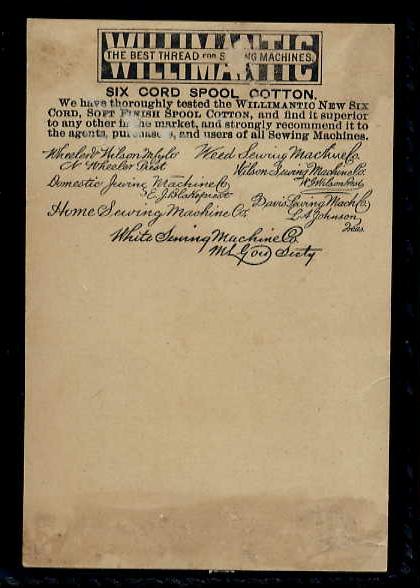 WILLIMANTIC
THE BEST THREAD FOR SEWING MACHINES.
SIX CORD SPOOL COTTON.
We have thoroughly tested the WILLIMANTIC NEW SIX
CORD, SOFT FINISH SPOOL COTTON, and find it superior
to any other in the market, and strongly recommend it to
the agents, purchasers, and users of all Sewing Machines.
Wheeler & Wilson Mfg Co
N Wheeler Prest
Weed Sewing Machine Co.
Wilson Sewing Machine Co.
W.G. Wilson Prest.
Domestic Sewing Machine Co
E. J. Blakeproot
Davis Sewing Mach Co
L.A. Johnson
Treas.
Home Sewing Machine Co.
White Sewing Machine Co.
Secty